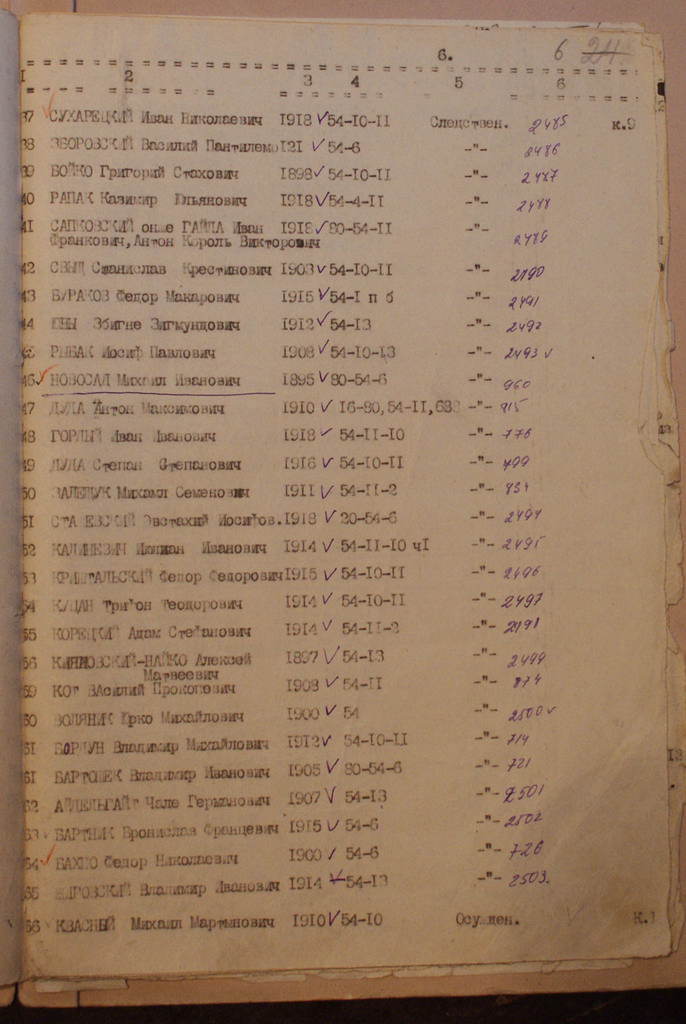 6. 6 24
I 2 3 4 5 6
37 СУХАРЕЦКИЙ Иван Николаевич 1918 ✓ 54-10-11 Следствен. 2485 к.9
38 ЗБОРОВСКИЙ Василий Пантилемо 121 ✓ 54-6 -"- 2486
39 БОЙКО Григорий Стахович 1898 ✓ 54-10-11 -"- 2487
40 РАПАК Казимир Юльянович 1918 ✓ 54-4-11 -"- 2488
41 САПКОВСКИЙ онже ГАЙДА Иван 1918 ✓ 80-54-11 -"- 2489
Франкович, Антон Король Викторович
42 Станислав Крестинович 1903 ✓ 54-10-11 -"- 2490
43 БУРАКОВ Федор Макарович 1915 ✓ 54-I п б -"- 2491
44 Збигне Зигмундович 1912 ✓ 54-13 -"- 2492
45 РЫБАК Иосиф Павлович 1908 ✓ 54-10-13 -"- 2493 ✓
46 ✓ НОВОСАД Михаил Иванович 1895 ✓ 80-54-6 -"- 960
47 ДУДА Антон Максимович 1910 ✓ 16-80,54-11, -"- 915
48 ГОРДЫЙ Иван Иванович 1918 ✓ 54-11-10 -"- 776
49 ДУДА Степан Степанович 1916 ✓ 54-10-11 -"- 499
50 ЗАЛЕЩУК Михаил Семенович 1911 ✓ 54-11-2 -"- 834
51 Эвстахий Иосифов. 1918 ✓ 20-54-6 -"- 2494
52 КАЛИНЕВИЧ Иванович 1914 ✓ 54-11-10 чI -"- 2495
53 КРИШТАЛЬСКИЙ Федор Федорович 1915 ✓ 54-10-11 -"- 2496
54 КУЦАН Трифон Теодорович 1914 ✓ 54-10-11 -"- 2497
55 КОРЕЦКИЙ Адам Стефанович 1914 ✓ 54-11-2 -"- 2498
56 Алексей 1897 ✓ 54-13 -"- 2499
Матвеевич
59 КОТ Василий Прокопевич 1908 ✓ 54-11 -"- 874
60 ВОЛЯНИК Юрко Михайлович 1900 ✓ 54 -"- 2500 ✓
61 БОРДУН Владимир Михайлович 1912 ✓ 54-10-11 -"- 714
61 БАРТОШЕК Владимир Иванович 1905 ✓ 80-54-6 -"- 721
62 АЙДЕЛЬГАЙТ Чале Германович 1907 ✓ 54-13 -"- 2501
63 БАРТНИК Бронислав Францевич 1915 ✓ 54-6 -"- 2502
64 ✓ БАХНО Федор Николаевич 1900 ✓ 54-6 -"- 726
65 Владимир Иванович 1914 ✓ 54-13 -"- 2503.
66 КВАСНЫЙ Михаил Мартынович 1910 ✓ 54-10 Осужден. К.1